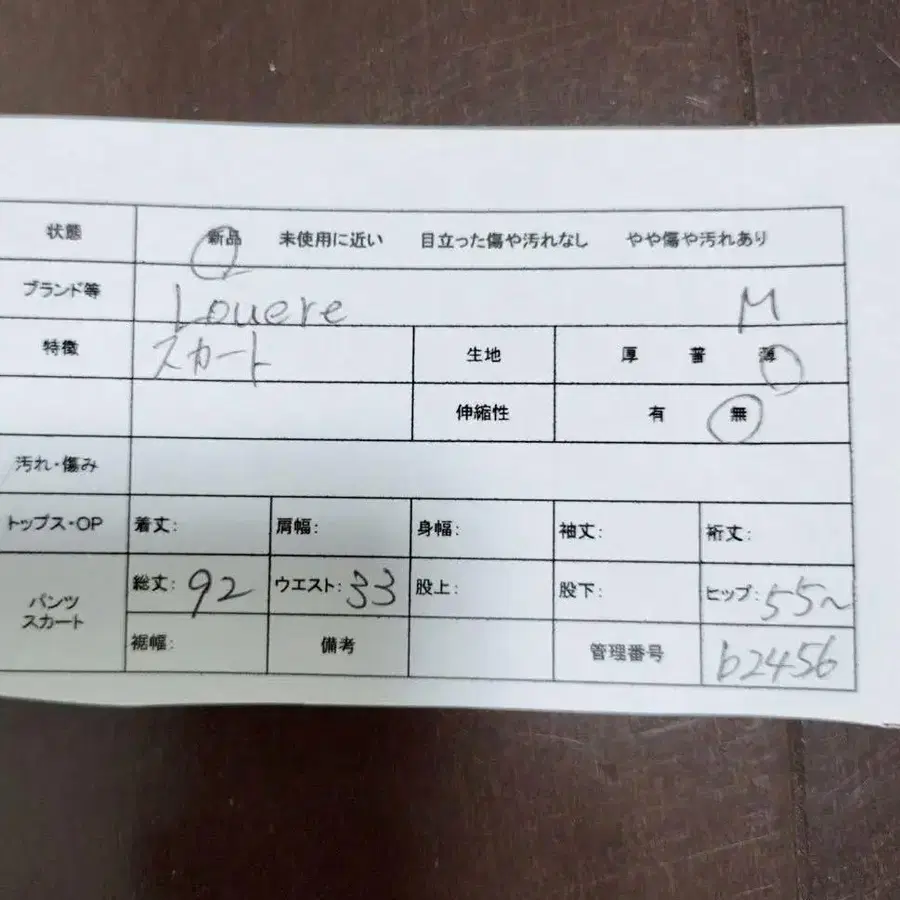 状態 新品 未使用に近い 目立った傷や汚れなし やや傷や汚れあり
ブランド等 Louere M
特徴 スカート 生地 厚 普 薄
伸縮性 有 無
汚れ・傷み
トップス・OP 着丈: 肩幅: 身幅: 袖丈: 裄丈:
パンツ
スカート
総丈: 92 ウエスト: 33 股上: 股下: ヒップ: 55~
裾幅: 備考 管理番号 b2456